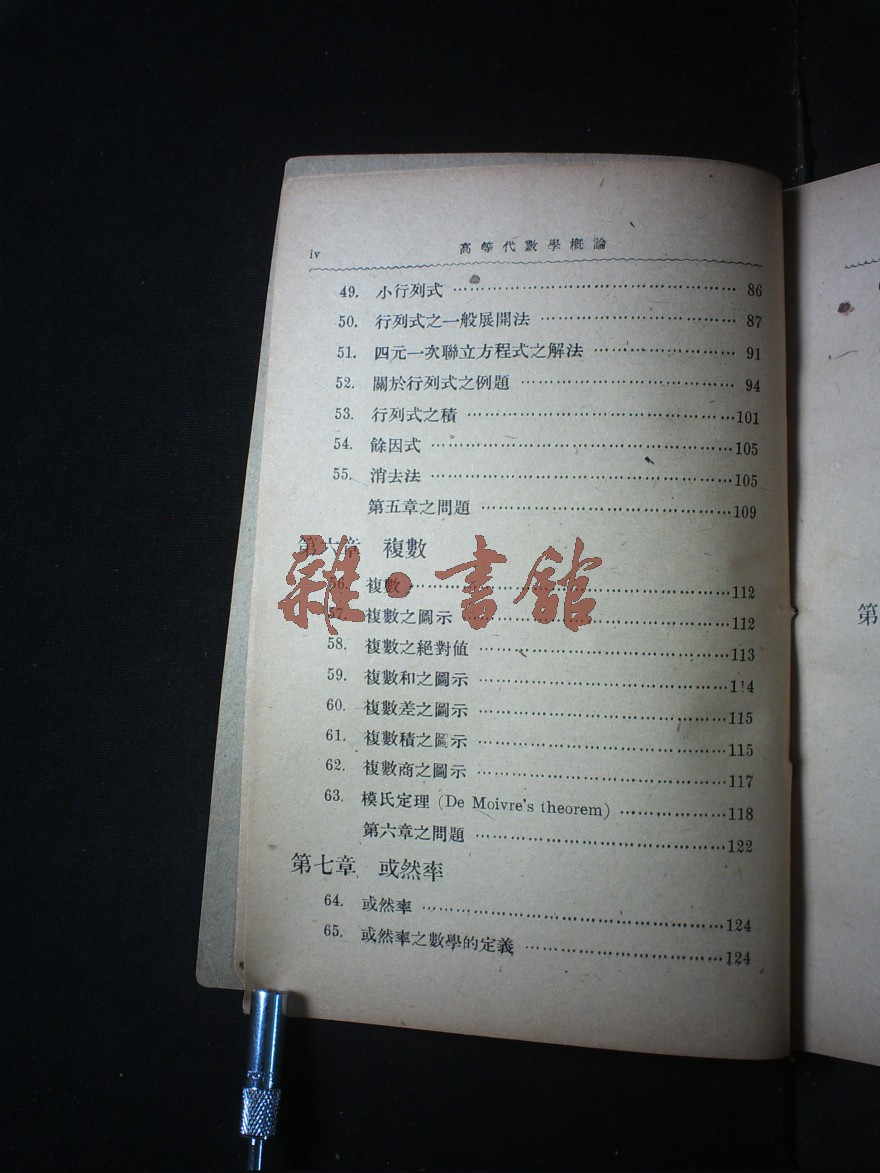 iv 高等代數學概論
49. 小行列式 ……………………………………… 86
50. 行列式之一般展開法 ………………………… 87
51. 四元一次聯立方程式之解法 ………………… 91
52. 關於行列式之例題 …………………………… 94
53. 行列式之積 ……………………………………101
54. 餘因式 …………………………………………105
55. 消去法 …………………………………………105
第五章之問題 …………………………………109
第六章 複數
56. 複數 ……………………………………………112
57. 複數之圖示 ……………………………………112
58. 複數之絕對値 …………………………………113
59. 複數和之圖示 …………………………………114
60. 複數差之圖示 …………………………………115
61. 複數積之圖示 …………………………………115
62. 複數商之圖示 …………………………………117
63. 模氏定理 (De Moivre's theorem) ……………118
第六章之問題 …………………………………122
第七章 或然率
64. 或然率 …………………………………………124
65. 或然率之數學的定義 …………………………124
雜·書館
第